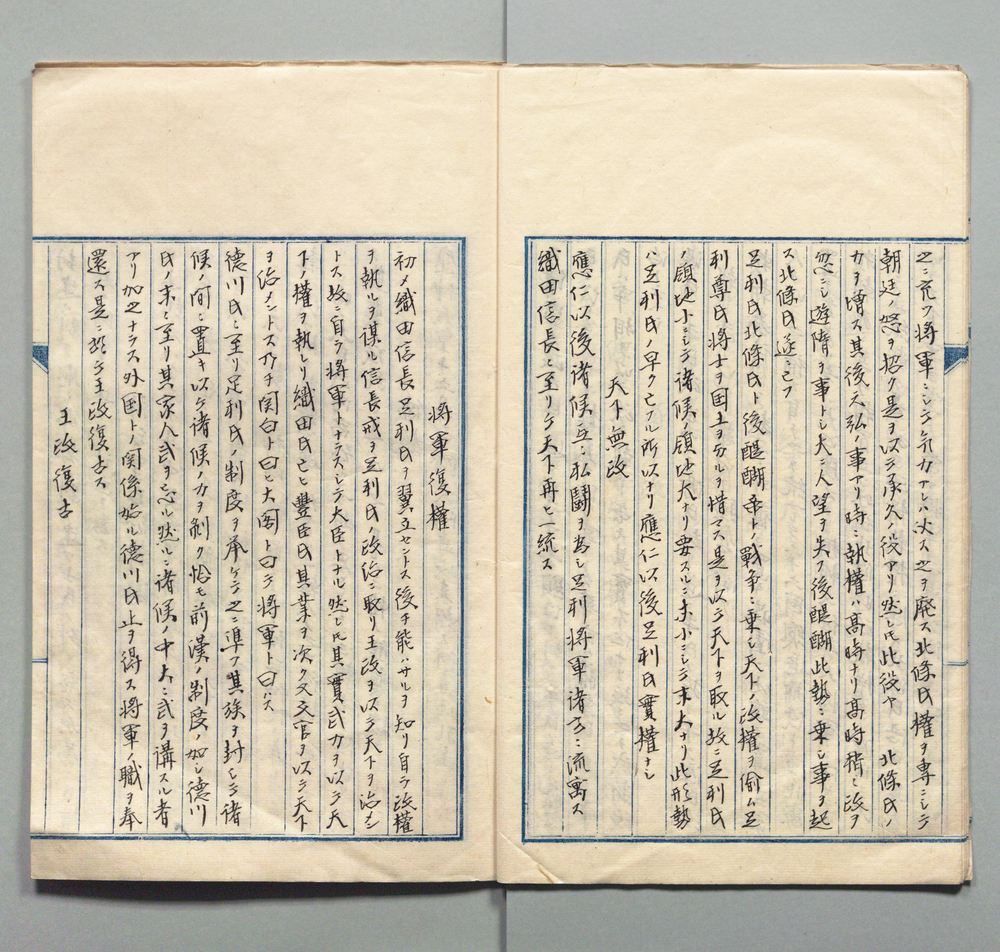 之ニ充ツ将軍ニシテ気力アレハ次ス之ヲ廃ス北條氏權ヲ専ニシテ
朝廷ノ怒ヲ招ク是ヲ以テ承久ノ役アリ然レ𪜈此役ヤ 北條氏ノ
力ヲ增ス其後元弘ノ事アリ時ニ執權ハ髙時ナリ髙時稍ミ政ヲ
怠ニシ遊惰ヲ事トシ大ニ人望ヲ失フ後醍醐此勢ニ乗シ事ヲ起
ス北條氏遂ニ亡フ
足利氏北條氏ト後醍醐帝トノ戰争ニ乗シ天下ノ政權ヲ偷ム足
利尊氏将士ヲ国土ヲ分ルヲ惜マス是ヲ以テ天下ヲ取ル故ニ足利氏
ノ領地小ニシテ諸候ノ領地大ナリ要スルニ本小ニシテ末大ナリ此形勢
ハ足利氏ノ早ク亡フル所以ナリ應仁以後足利氏實權ナシ
天下無政
應仁以後諸候互ニ私鬪ヲ為シ足利将軍諸方ニ流寓ス
織田信長ニ至リテ天下再ヒ一統ス
将軍復權
初メ織田信長足利氏ヲ翼立セントス後チ能ハサルヲ知リ自ラ政權
ヲ執ルヲ謀ル信長或ヲ足利氏ノ政治ニ取リ王政ヲ以テ天下ヲ治メン
トス故ニ自ラ将軍トナラスシテ大臣トナル然レ𪜈其實武力ヲ以テ天
下ノ權ヲ執レリ織田氏亡ヒ豐臣氏其業ヲ次ク又文官ヲ以テ天下
ヲ治メントス乃チ関白ト曰ヒ大閤ト曰テ将軍ト曰ハス
德川氏ニ至リ足利氏ノ制度ヲ承ケテ之ニ準フ其族ヲ封シテ諸
候ノ間ニ置キ以テ諸候ノ力ヲ削ク恰モ前漢ノ制度ノ如シ德川
氏ノ末ニ至リ其家人武ヲ忘ル然ルニ諸候ノ中大ニ武ヲ講スル者
アリ加之ナラス外国トノ関係始ル德川氏止ヲ得ス将軍ノ職ヲ奉
還ス是ニ於テ王政復古ス
王政復古